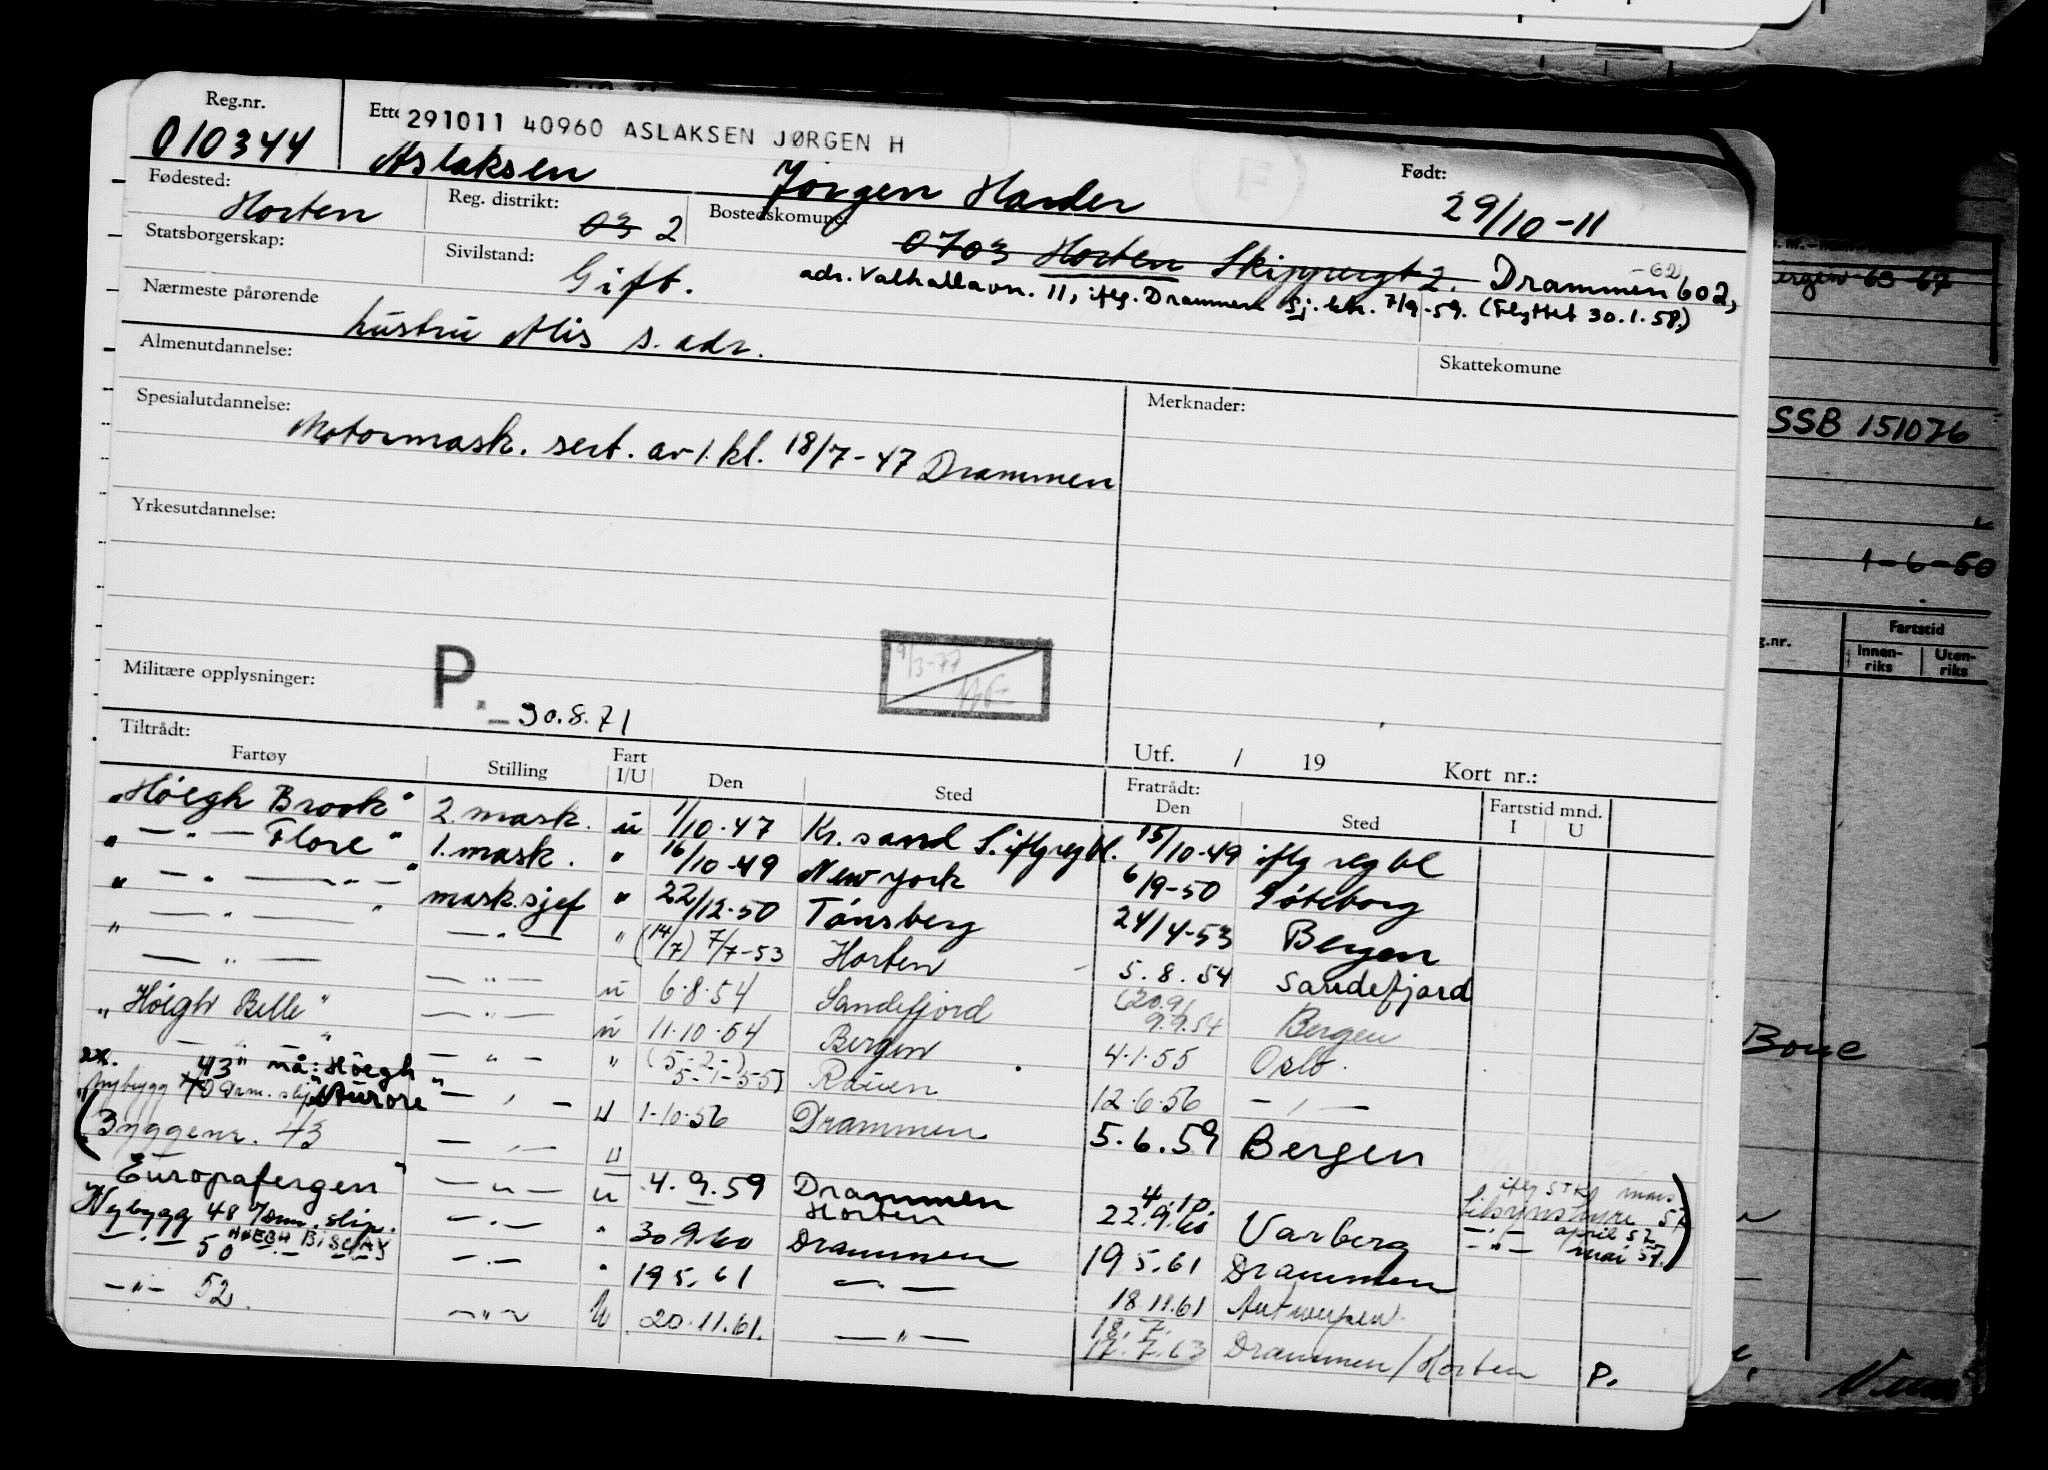 Reg.nr.
010344
291011 40960 ASLAKSEN JØRGEN H
Aslaksen Jørgen Harder
Født:
29/10-11
Fødested:
Horten
Reg. distrikt:
03 2
Bostedskomune:
0703 Horten Skippergt 2. Drammen 602,
-62
adr. Valhallavn. 11, iflg. Drammen Sj. ktr. 7/9-59. (Flyttet 30.1.58.)
Statsborgerskap:
Sivilstand:
Gift.
Nærmeste pårørende
hustru Alis s. adr.
Skattekomune
Almenutdannelse:
Spesialutdannelse:
Motormask. sert. av 1. kl. 18/7-47 Drammen
Merknader:
Yrkesutdannelse:
Militære opplysninger:
P. - 30.8.71
9/3-77
Tiltrådt:
Utf. / 19 Kort nr.:
Fartøy Stilling Fart I/U Den Sted Fratrådt: Den Sted Fartstid mnd. I U
"Höegh Brook" 2 mask. u 1/10-47 Kr.sand S. iflg reg bl. 15/10-49 iflg reg bl
" — " — Flore" 1. mask. " 16/10-49 New York 6/9-50 Göteborg
" — " — " — " mask.sjef " 22/12-50 Tønsberg 24/4-53 Bergen
" — " — " — " — " (14/7) 7/7-53 Horten 5.8.54 Sandefjord
— " — — " — u 6.8.54 Sandefjord (20.9) 9.9.54 Bergen
"Höegh Belle" — " — u 11.10.54 Bergen 4.1.55 Oslo.
— " — " — " — " (5-2-) 5-1-55) Rouen 12.6.56 — " —
ex. 43" nå: Höegh
"Nybygg 40 Drm. slip" Aurore" — " — u 1-10-56 Drammen 5.6.59 Bergen
(Byggenr. 43 — " — u
iflg
tilsynshyre 57
— " — april 57
— " — mai 57.)
"Europafergen" — " — u 4.9.59 Drammen Horten 4.10. 22.9.60 Varberg
Nybygg 48 Drm. slip. — " — " 30.9.60 Drammen 19.5.61 Drammen
— " — 50 HØEGH BISCAY — " — " 19.5.61 — " — 18.11.61 Antwerpen.
— " — 52. — " — u 20.11.61. — " — 18.7. 17.7.63 Drammen / Horten P.
ergen 63-67
SSB 151076
"
1-6-50
g.nr.
Fartstid
Innenriks Utenriks
Boue